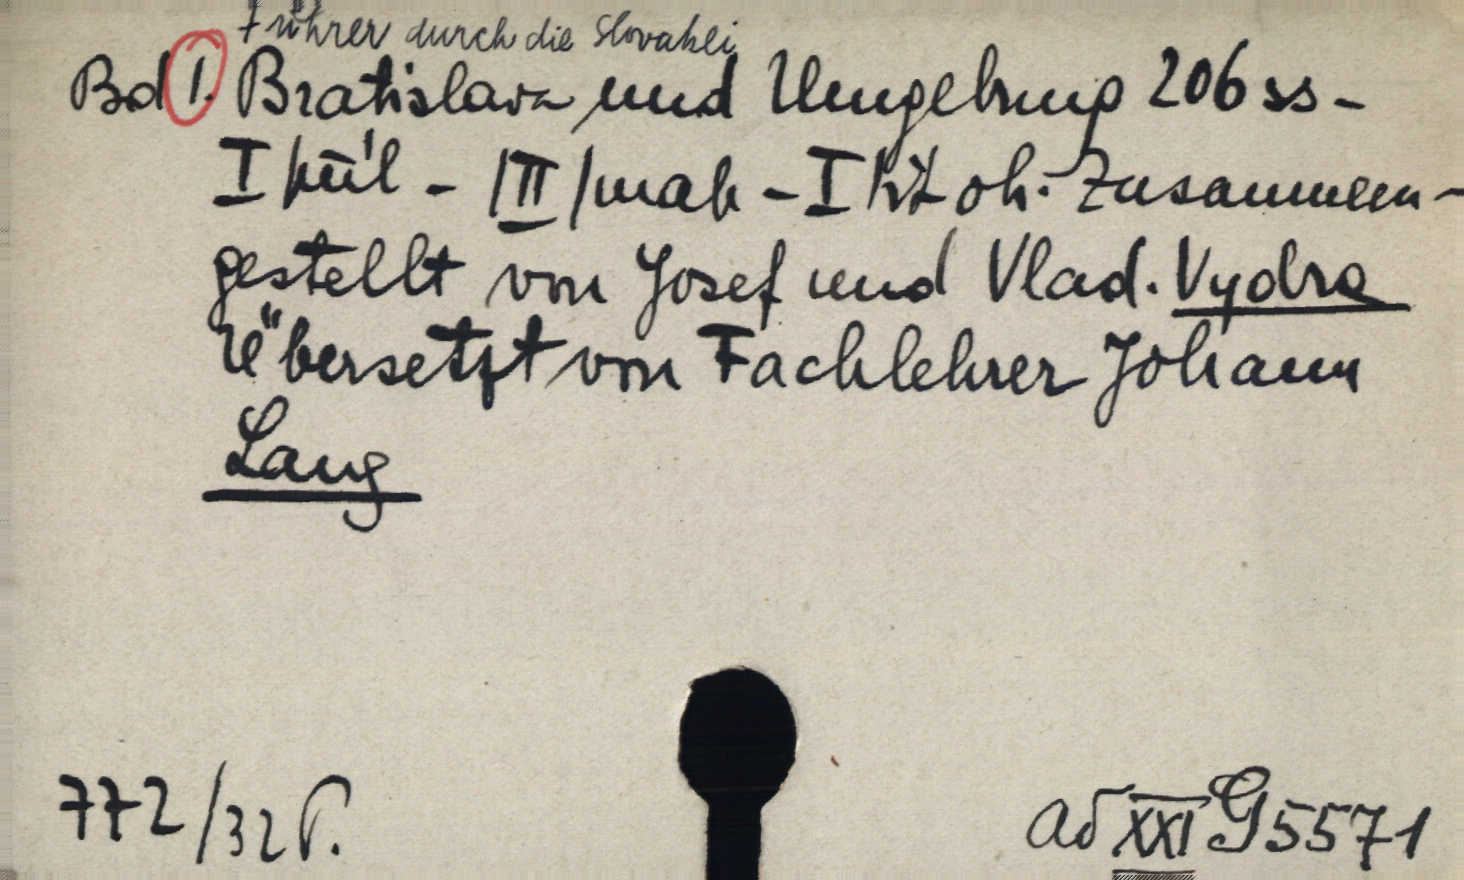 Führer durch die Slovakei
Bd 1. Bratislava und Umgebung 206 ss -
I /půl - /III/ map - I
Zusammen-
gestellt von Josef und Vlad. Vydra
Übersetzt von Fachlehrer Johann
Lang
772/32 P.
ad XXI G 5571